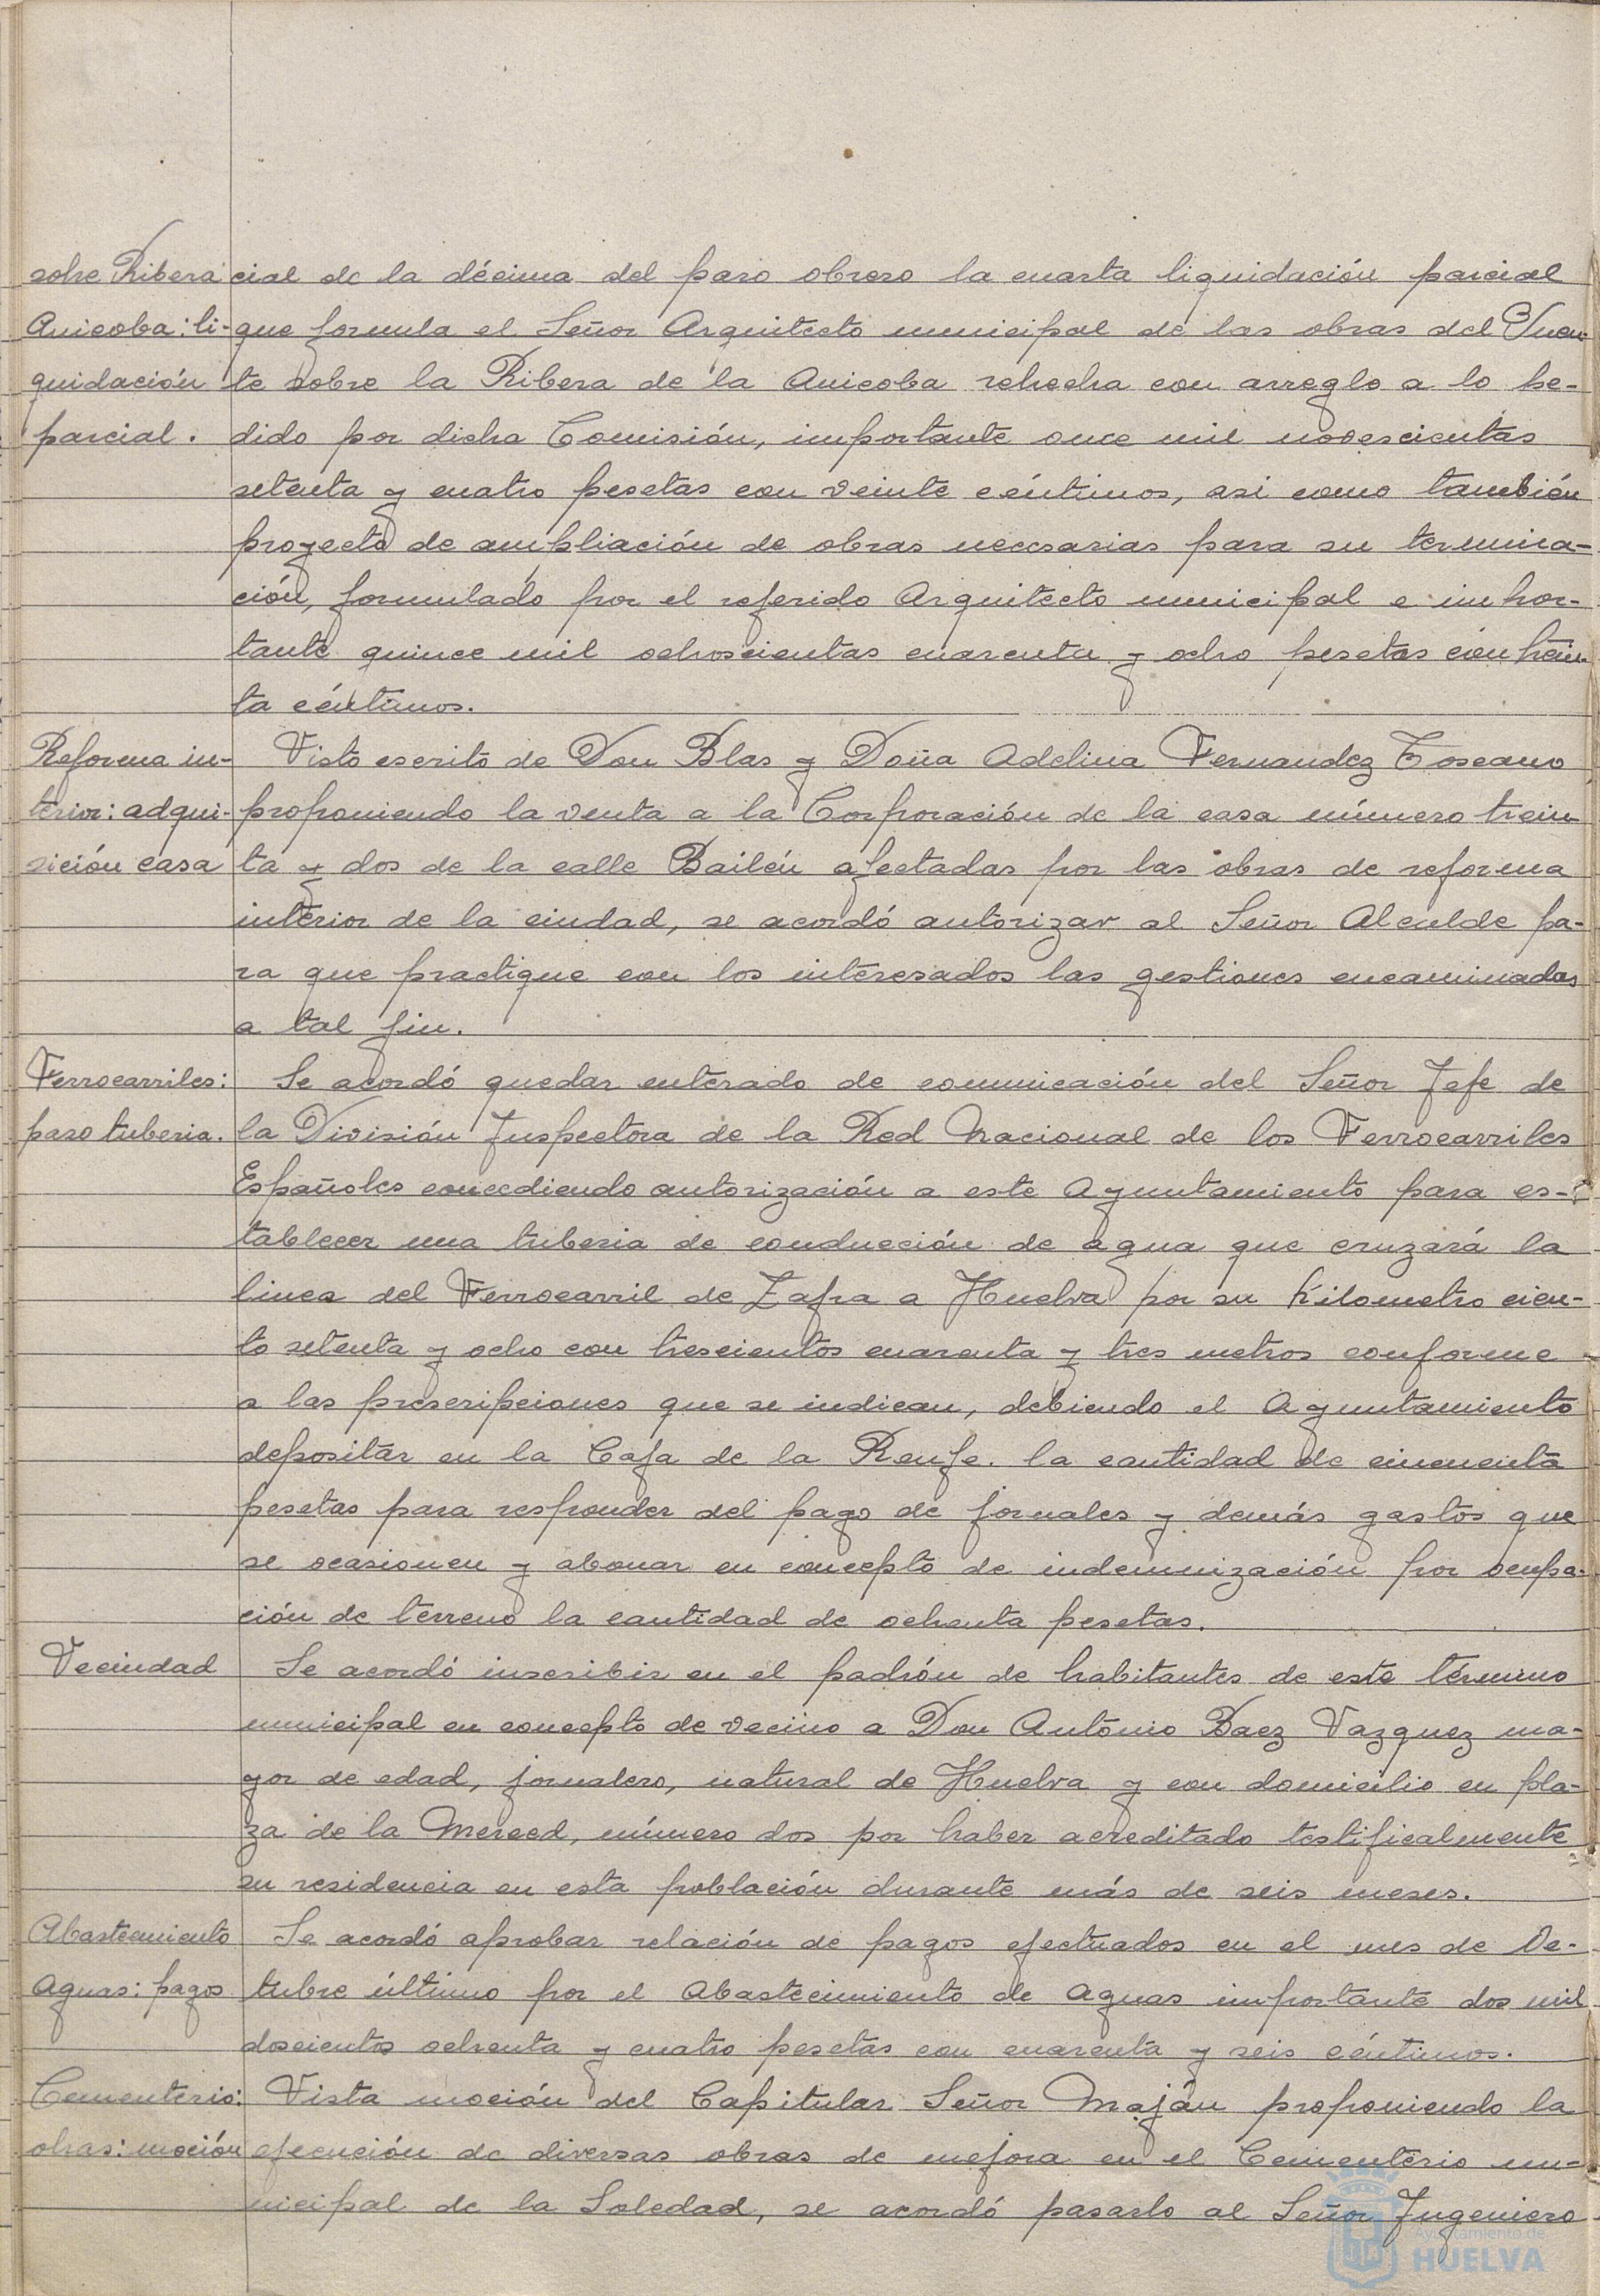 sobre Ribera
Anicoba: li-
quidación
parcial.
cial de la décima del paro obrero la cuarta liquidación parcial
que formula el Señor Arquitecto municipal de las obras del Puen-
te sobre la Ribera de la Anicoba rehecha con arreglo a lo pe-
dido por dicha Comisión, importante once mil novescientas
setenta y cuatro pesetas con veinte céntimos, asi como también
proyecto de ampliación de obras necesarias para su termina-
ción, formulado por el referido Arquitecto municipal e impor-
tante quince mil ochoscientas cuarenta y ocho pesetas
ta céntimos.
Reforma in-
terior: adqui-
sición casa
Visto escrito de Don Blas y Doña Adelina Fernandez Toscano
proponiendo la venta a la Corporación de la casa número trein-
ta y dos de la calle Bailén afectadas por las obras de reforma
interior de la ciudad, se acordó autorizar al Señor Alcalde pa-
ra que practique con los interesados las gestiones encaminadas
a tal fin.
Ferrocarriles:
paso tuberia.
Se acordó quedar enterado de comunicación del Señor Jefe de
la División Inspectora de la Red Nacional de los Ferrocarriles
Españoles concediendo autorización a este Ayuntamiento para es-
tablecer una tuberia de conducción de agua que cruzará la
linea del Ferrocarril de Zafra a Huelva por su Kilometro cien-
to setenta y ocho con trescientos cuarenta y tres metros conforme
a las prescripciones que se indican, debiendo el Ayuntamiento
depositar en la Caja de la Renfe. la cantidad de cincuenta
pesetas para responder del pago de jornales y demás gastos que
se ocasionen y abonar en concepto de indemnización por ocupa-
ción de terreno la cantidad de ochenta pesetas.
Vecindad
Se acordó inscribir en el padrón de habitantes de este término
municipal en concepto de vecino a Don António Baez Vazquez ma-
yor de edad, jornalero, natural de Huelva y con domicilio en pla-
za de la Merced, número dos por haber acreditado testificalmente
su residencia en esta población durante más de seis meses.
Abastecmiento
Aguas: pagos
Se acordó aprobar relación de pagos efectuados en el mes de Oc-
tubre último por el Abastecimiento de Aguas importante dos mil
doscientos ochenta y cuatro pesetas con cuarenta y seis céntimos.
Cementerio:
obras: moción
Vista moción del Capitular Señor Maján proponiendo la
ejecución de diversas obras de mejora en el Cementerio mu-
nicipal de la Soledad, se acordó pasarlo al Señor Ingeniero
Ayuntamiento de
HUELVA